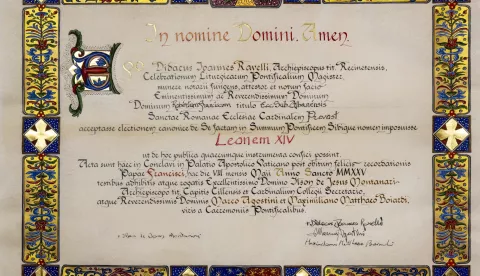 In nomine Domini. Amen.
Ego Didacus Ioannes Ravelli, Archiepiscopus tit. Recinetensis,
Celebrationum Liturgicarum Pontificalium Magister,
munere notarii fungens, attestor et notum facio
Eminentissimum ac Reverendissimum Dominum
Dominum titulo Sub.
Sanctae Romanae Ecclesiae Cardinalem Prevost
acceptasse electionem canonice de Se factam in Summum Pontificem Sibique nomen imposuisse
Leonem XIV
ut de hoc publica quaecumque instrumenta confici possint.
Acta sunt haec in Conclavi in Palatio Apostolico Vaticano post obitum felicis recordationis
Papae Francisci, hac die VIII mensis Maii Anno Sancto MMXXV
testibus adhibitis atque rogatis Excellentissimo Domino Ilson de Jesus Montanari
Archiepiscopo tit. Capitis Cillensis et Cardinalium Collegii Secretario,
atque Reverendissimis Dominis Marco Agostini et Maximiliano Matthaeo Boiardi,
viris a Caeremoniis Pontificalibus.